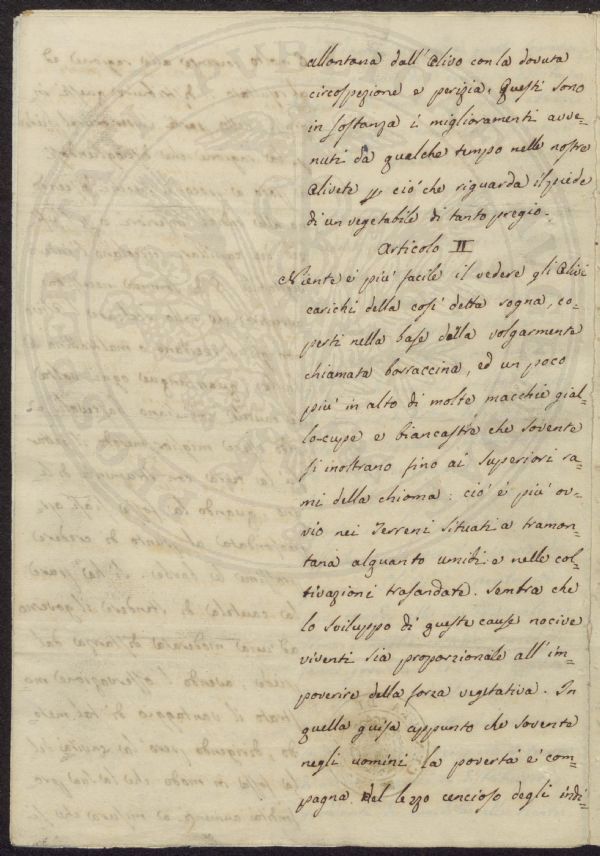 allontana dall'Olivo con la dovuta
circospezione e perizia. Questi sono
in sostanza i miglioramenti avve=
nuti da qualche tempo nelle nostre
Olivete p ciò che riguarda il piede
di un vegetabile di tanto pregio.
Articolo II
Niente è più facile il vedere gli Olivi
carichi della così detta rogna, co=
perti nella base della volgarmente
chiamata borraccina, ed un poco
più in alto di molte macchie gial=
lo-cupe e biancastre che sovente
si inostrano fino ai superiori ra=
mi della chioma: ciò è più ov=
vio nei Terreni situati a tramon=
tana alquanto umidi e nelle col=
tivazioni trasandate. Sembra che
lo sviluppo di queste cause nocive
viventi sia proporzionale all'im=
poverire della forza vegetativa. In
quella guisa appunto che sovente
negli uomini la povertà è com=
pagna del lezzo cencioso degli indi=